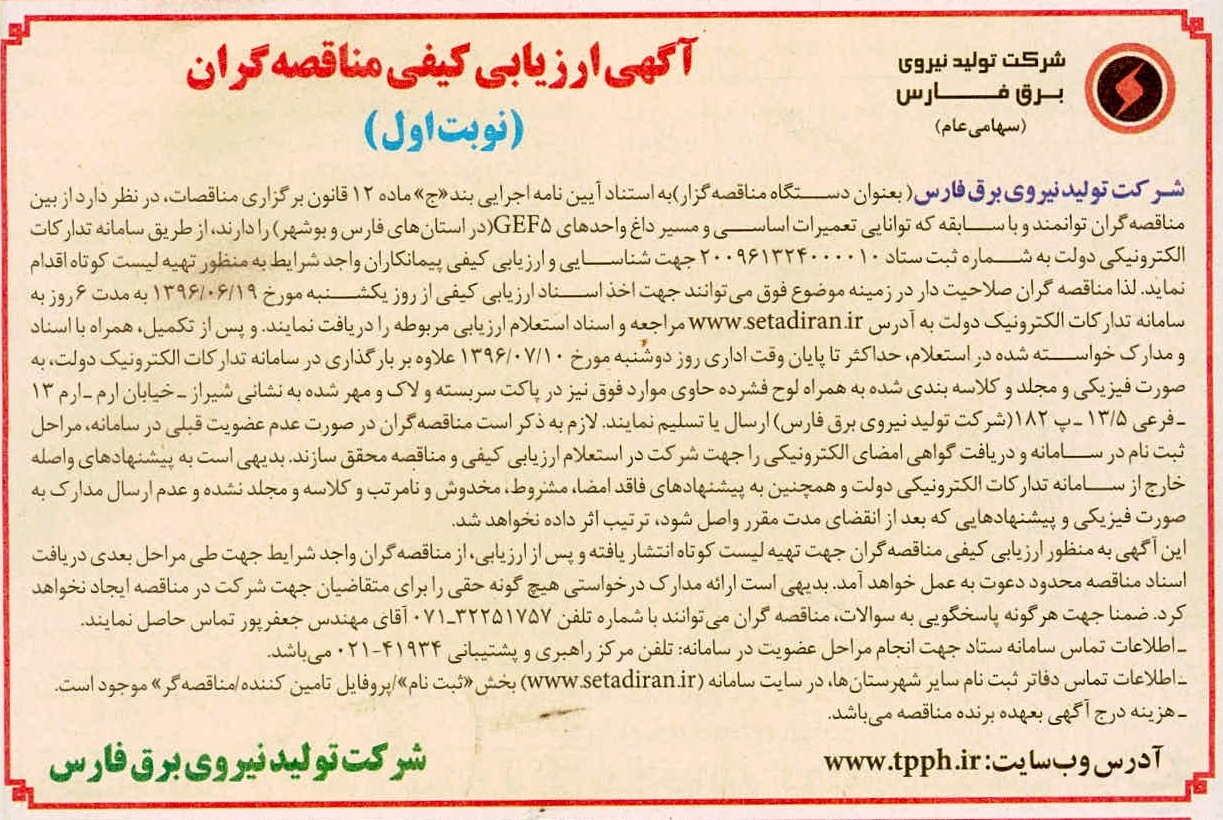 شرکت تولید نیروی
برق فارس
(سهامی عام)
آگهی ارزیابی کیفی مناقصه‌گران
(نوبت اول)
شرکت تولید نیروی برق فارس( بعنوان دستگاه مناقصه‌گزار)به استناد آیین نامه اجرایی بند«ج» ماده ۱۲ قانون برگزاری مناقصات، در نظر دارد از بین
مناقصه‌گران توانمند و با سابقه که توانایی تعمیرات اساسی و مسیر داغ واحدهای GEF۵(در استان‌های فارس و بوشهر) را دارند، از طریق سامانه تدارکات
الکترونیکی دولت به شماره ثبت ستاد ۲۰۰۹۶۱۳۲۴۰۰۰۰۱۰ جهت شناسایی و ارزیابی کیفی پیمانکاران واجد شرایط به منظور تهیه لیست کوتاه اقدام
نماید. لذا مناقصه گران صلاحیت دار در زمینه موضوع فوق می‌توانند جهت اخذ اسناد ارزیابی کیفی از روز یکشنبه مورخ ۱۳۹۶/۰۶/۱۹ به مدت ۶ روز به
سامانه تدارکات الکترونیک دولت به آدرس www.setadiran.ir مراجعه و اسناد استعلام ارزیابی مربوطه را دریافت نمایند. و پس از تکمیل، همراه با اسناد
و مدارک خواسته شده در استعلام، حداکثر تا پایان وقت اداری روز دوشنبه مورخ ۱۳۹۶/۰۷/۱۰ علاوه بر بارگذاری در سامانه تدارکات الکترونیک دولت، به
صورت فیزیکی و مجلد و کلاسه بندی شده به همراه لوح فشرده حاوی موارد فوق نیز در پاکت سربسته و لاک و مهر شده به نشانی شیراز ـ خیابان ارم ـ ارم ۱۳
ـ فرعی ۱۳/۵ ـ پ ۱۸۲(شرکت تولید نیروی برق فارس) ارسال یا تسلیم نمایند. لازم به ذکر است مناقصه‌گران در صورت عدم عضویت قبلی در سامانه، مراحل
ثبت نام در سامانه و دریافت گواهی امضای الکترونیکی را جهت شرکت در استعلام ارزیابی کیفی و مناقصه محقق سازند. بدیهی است به پیشنهادهای واصله
خارج از سامانه تدارکات الکترونیکی دولت و همچنین به پیشنهادهای فاقد امضا، مشروط، مخدوش و نامرتب و کلاسه و مجلد نشده و عدم ارسال مدارک به
صورت فیزیکی و پیشنهادهایی که بعد از انقضای مدت مقرر واصل شود، ترتیب اثر داده نخواهد شد.
این آگهی به منظور ارزیابی کیفی مناقصه‌گران جهت تهیه لیست کوتاه انتشار یافته و پس از ارزیابی، از مناقصه‌گران واجد شرایط جهت طی مراحل بعدی دریافت
اسناد مناقصه محدود دعوت به عمل خواهد آمد. بدیهی است ارائه مدارک درخواستی هیچ گونه حقی را برای متقاضیان جهت شرکت در مناقصه ایجاد نخواهد
کرد. ضمنا جهت هرگونه پاسخگویی به سوالات، مناقصه گران می‌توانند با شماره تلفن ۳۲۲۵۱۷۵۷ـ۰۷۱ آقای مهندس جعفرپور تماس حاصل نمایند.
ـ اطلاعات تماس سامانه ستاد جهت انجام مراحل عضویت در سامانه: تلفن مرکز راهبری و پشتیبانی ۴۱۹۳۴-۰۲۱ می‌باشد.
ـ اطلاعات تماس دفاتر ثبت نام سایر شهرستان‌ها، در سایت سامانه (www.setadiran.ir) بخش«ثبت نام»/پروفایل تامین کننده/مناقصه‌گر» موجود است.
ـ هزینه درج آگهی بعهده برنده مناقصه می‌باشد.
آدرس وب سایت: www.tpph.ir
شرکت تولید نیروی برق فارس